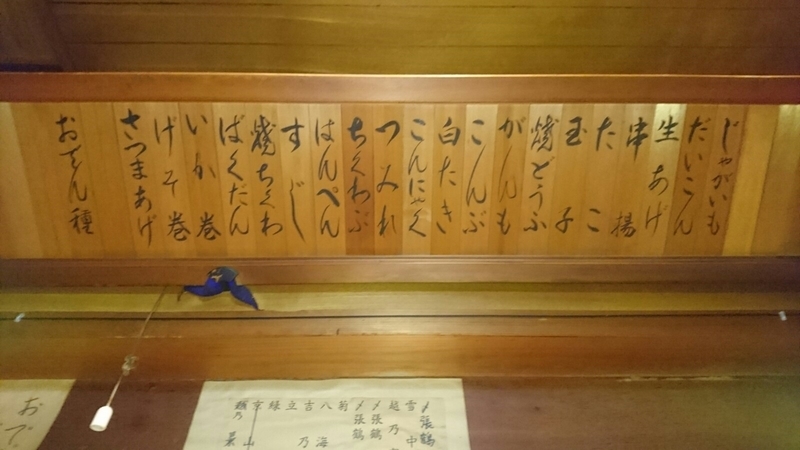 じゃがいも
だいこん
生あげ
串揚
たこ
玉子
焼どうふ
がんも
こんぶ
白たき
こんにゃく
つみれ
ちくわぶ
はんぺん
すじ
焼ちくわ
ばくだん
いか巻
げそ巻
さつまあげ
おでん種
〆張鶴
雪中
越乃
〆張鶴
〆張鶴
菊
八海
吉乃
立
緑
越乃景
おで